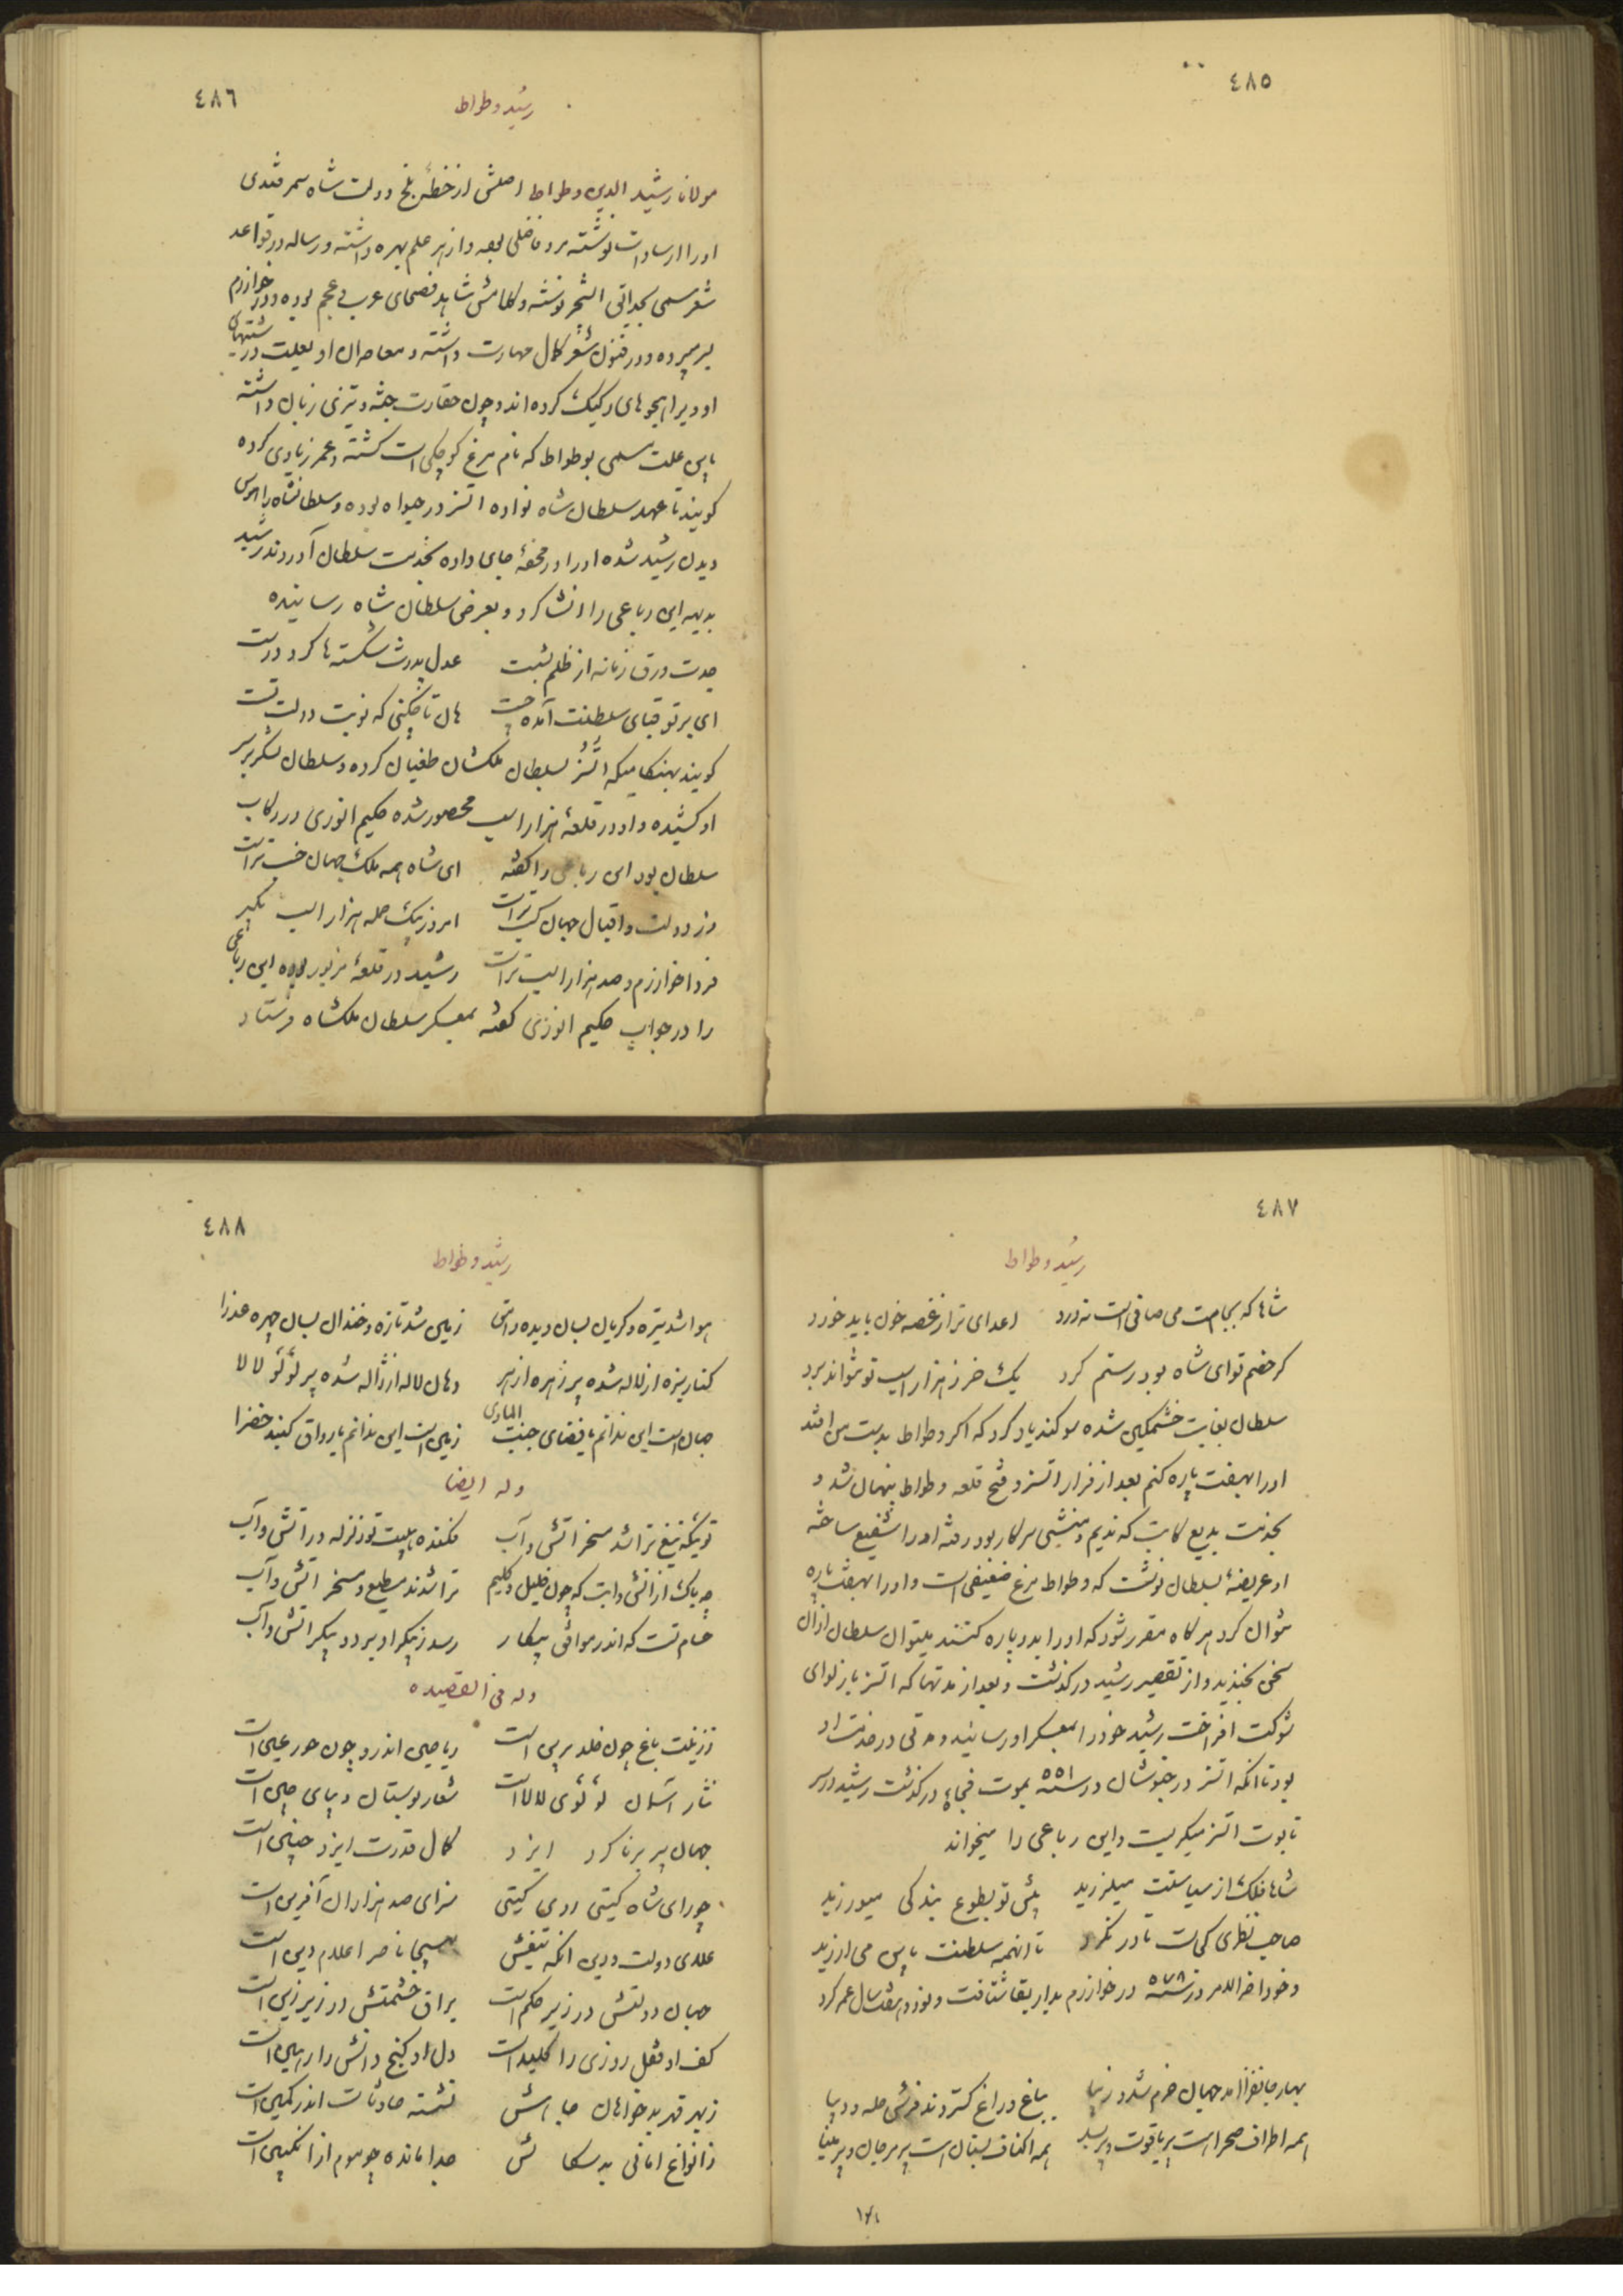 ٤٨٥
٤٨٦
رشید وطواط
مولانا رشید الدین وطواط اصلش از خطهٔ بلخ دولت شاه سمرقندی
اورا از سادات نوشته مرد فاضلی بوده و از هر علم بهره داشته و رساله در قواعد
شعر مسمی بحدائق السحر نوشته و کلامش شاهد فصحای عرب و عجم بوده و در خوارزم
بسر میبرده و در فنون شعر کمال مهارت داشته و معاصران او بعلت درشتیهای
او ویرا هجوهای رکیک کرده اند و چون حقارت جثه و تیزی زبان داشته
باین علت مسمی بوطواط که نام مرغ کوچکی است گشته و عمر زیادی کرده
گویند تا عهد سلطان شاه نواده اتسز در حیواه بوده و سلطانشاه را هوس
دیدن رشید شده اورا در محفهٔ جای داده بخدمت سلطان آوردند رشید
بدیهه این رباعی را انشا کرد و بعرض سلطان شاه رسانیده
جدت ورق زمانه از ظلم بشست عدل پدرت شکسته ها کرد درست
ای بر تو قبای سلطنت آمده چست هان تا چکنی که نوبت دولت تست
گویند بهنگامیکه اتسز بسلطان ملکشان طغیان کرده و سلطان لشکر بر سر
او کشیده و او در قلعهٔ هزار اسب محصور شده حکیم انوری در رکاب
سلطان بود این رباعی را گفته ای شاه همه ملک جهان حسب تراست
وز دولت و اقبال جهان کسب تراست امروز بیک حمله هزار اسب بگیر
فردا خوارزم و صد هزار اسب تراست رشید در قلعهٔ مزبور بوده این رباعی
را در جواب حکیم انوری گفته بمعسکر سلطان ملکشاه فرستاد
٤٨٧
رشید وطواط
شاها که بجامت می صافی است نه درد اعدای ترا ز غصه خون باید خورد
گر خصم تو ای شاه بود رستم گرد یک خر ز هزار اسب تو نتواند برد
سلطان بغایت خشمگین شده سوگند یاد کرد که اگر وطواط بدست من افتد
اورا بهفت پاره کنم بعد از فرار اتسز و فتح قلعه وطواط پنهان شد و
بخدمت بدیع کاتب که ندیم و منشی سرکار بود رفته اورا شفیع ساخته
او عریضهٔ بسلطان نوشت که وطواط مرغ ضعیفی است و اورا بهفت پاره
نتوان کرد هرگاه مقرر شود که اورا بدو پاره کنند میتوان سلطان ازان
سخن بخندید و از تقصیر رشید درگذشت و بعد از مدتها که اتسز باز لوای
شوکت افراخت رشید خود را بمعسکر او رسانید و مدتی در خدمت او
بود تا انکه اتسز در خبوشان در سنه ٥٥١ بموت فجاءه درگذشت رشید در سر
تابوت اتسز میگریست و این رباعی را میخواند
شاها فلک از سیاستت میلرزید پیش تو بطوع بندگی میورزید
صاحب نظری کجاست تا در نگرد تا انهمه سلطنت باین می ارزید
و خود اخر الامر در سنه ٥٧٨ در خوارزم بدار بقا شتافت و نود و هفت سال عمر کرد
بهار جانفزا امد جهان خرم شد و زیبا بباغ و راغ گستردند فرش حله و دیبا
همه اطراف صحرا است پر یاقوت و پر بسد همه اکناف بستان است پر مرجان و پر مینا
٤٨٨
رشید وطواط
هوا شد تیره و گریان بسان دیده وامق زمین شد تازه و خندان بسان چهره عذرا
کنار سبزه از لاله شده پر زهره ازهر دهان لاله از ژاله شده پر لؤلؤ لالا
جهان است این ندانم یا فضای جنت الماوی زمین است این ندانم یا رواق گنبد خضرا
وله ایضا
توئیکه تیغ ترا شد مسخر اتش و آب فکنده هیبت تو زلزله در اتش و آب
چه باک از اتش و ابت که چون خلیل و کلیم ترا شدند مطیع و مسخر اتش و آب
حسام تست که اندر مواقف پیکار رسد ز پیکر او بر دو پیکر اتش و آب
وله فی القصیده
ز زینت باغ چون خلد برین است ریاحین اندرو چون حور عین است
نثار آسمان لؤلؤی لالا است شعار بوستان دیبای چین است
جهان پیر برنا کرد ایزد کمال قدرت ایزد چنین است
چو رای شاه گیتی روی گیتی سزای صد هزاران آفرین است
علای دولت و دین انکه تیغش بهیجا ناصر اعلام دین است
جهان دولتش در زیر حکم است براق حشمتش در زیر زین است
کف او قفل روزی را کلید است دل او گنج دانش را امین است
ز بهر قهر بدخواهان جاهش نشسته حادثات اندر کمین است
ز انواع امانی بدسگالش جدا مانده چو موم از انگبین است